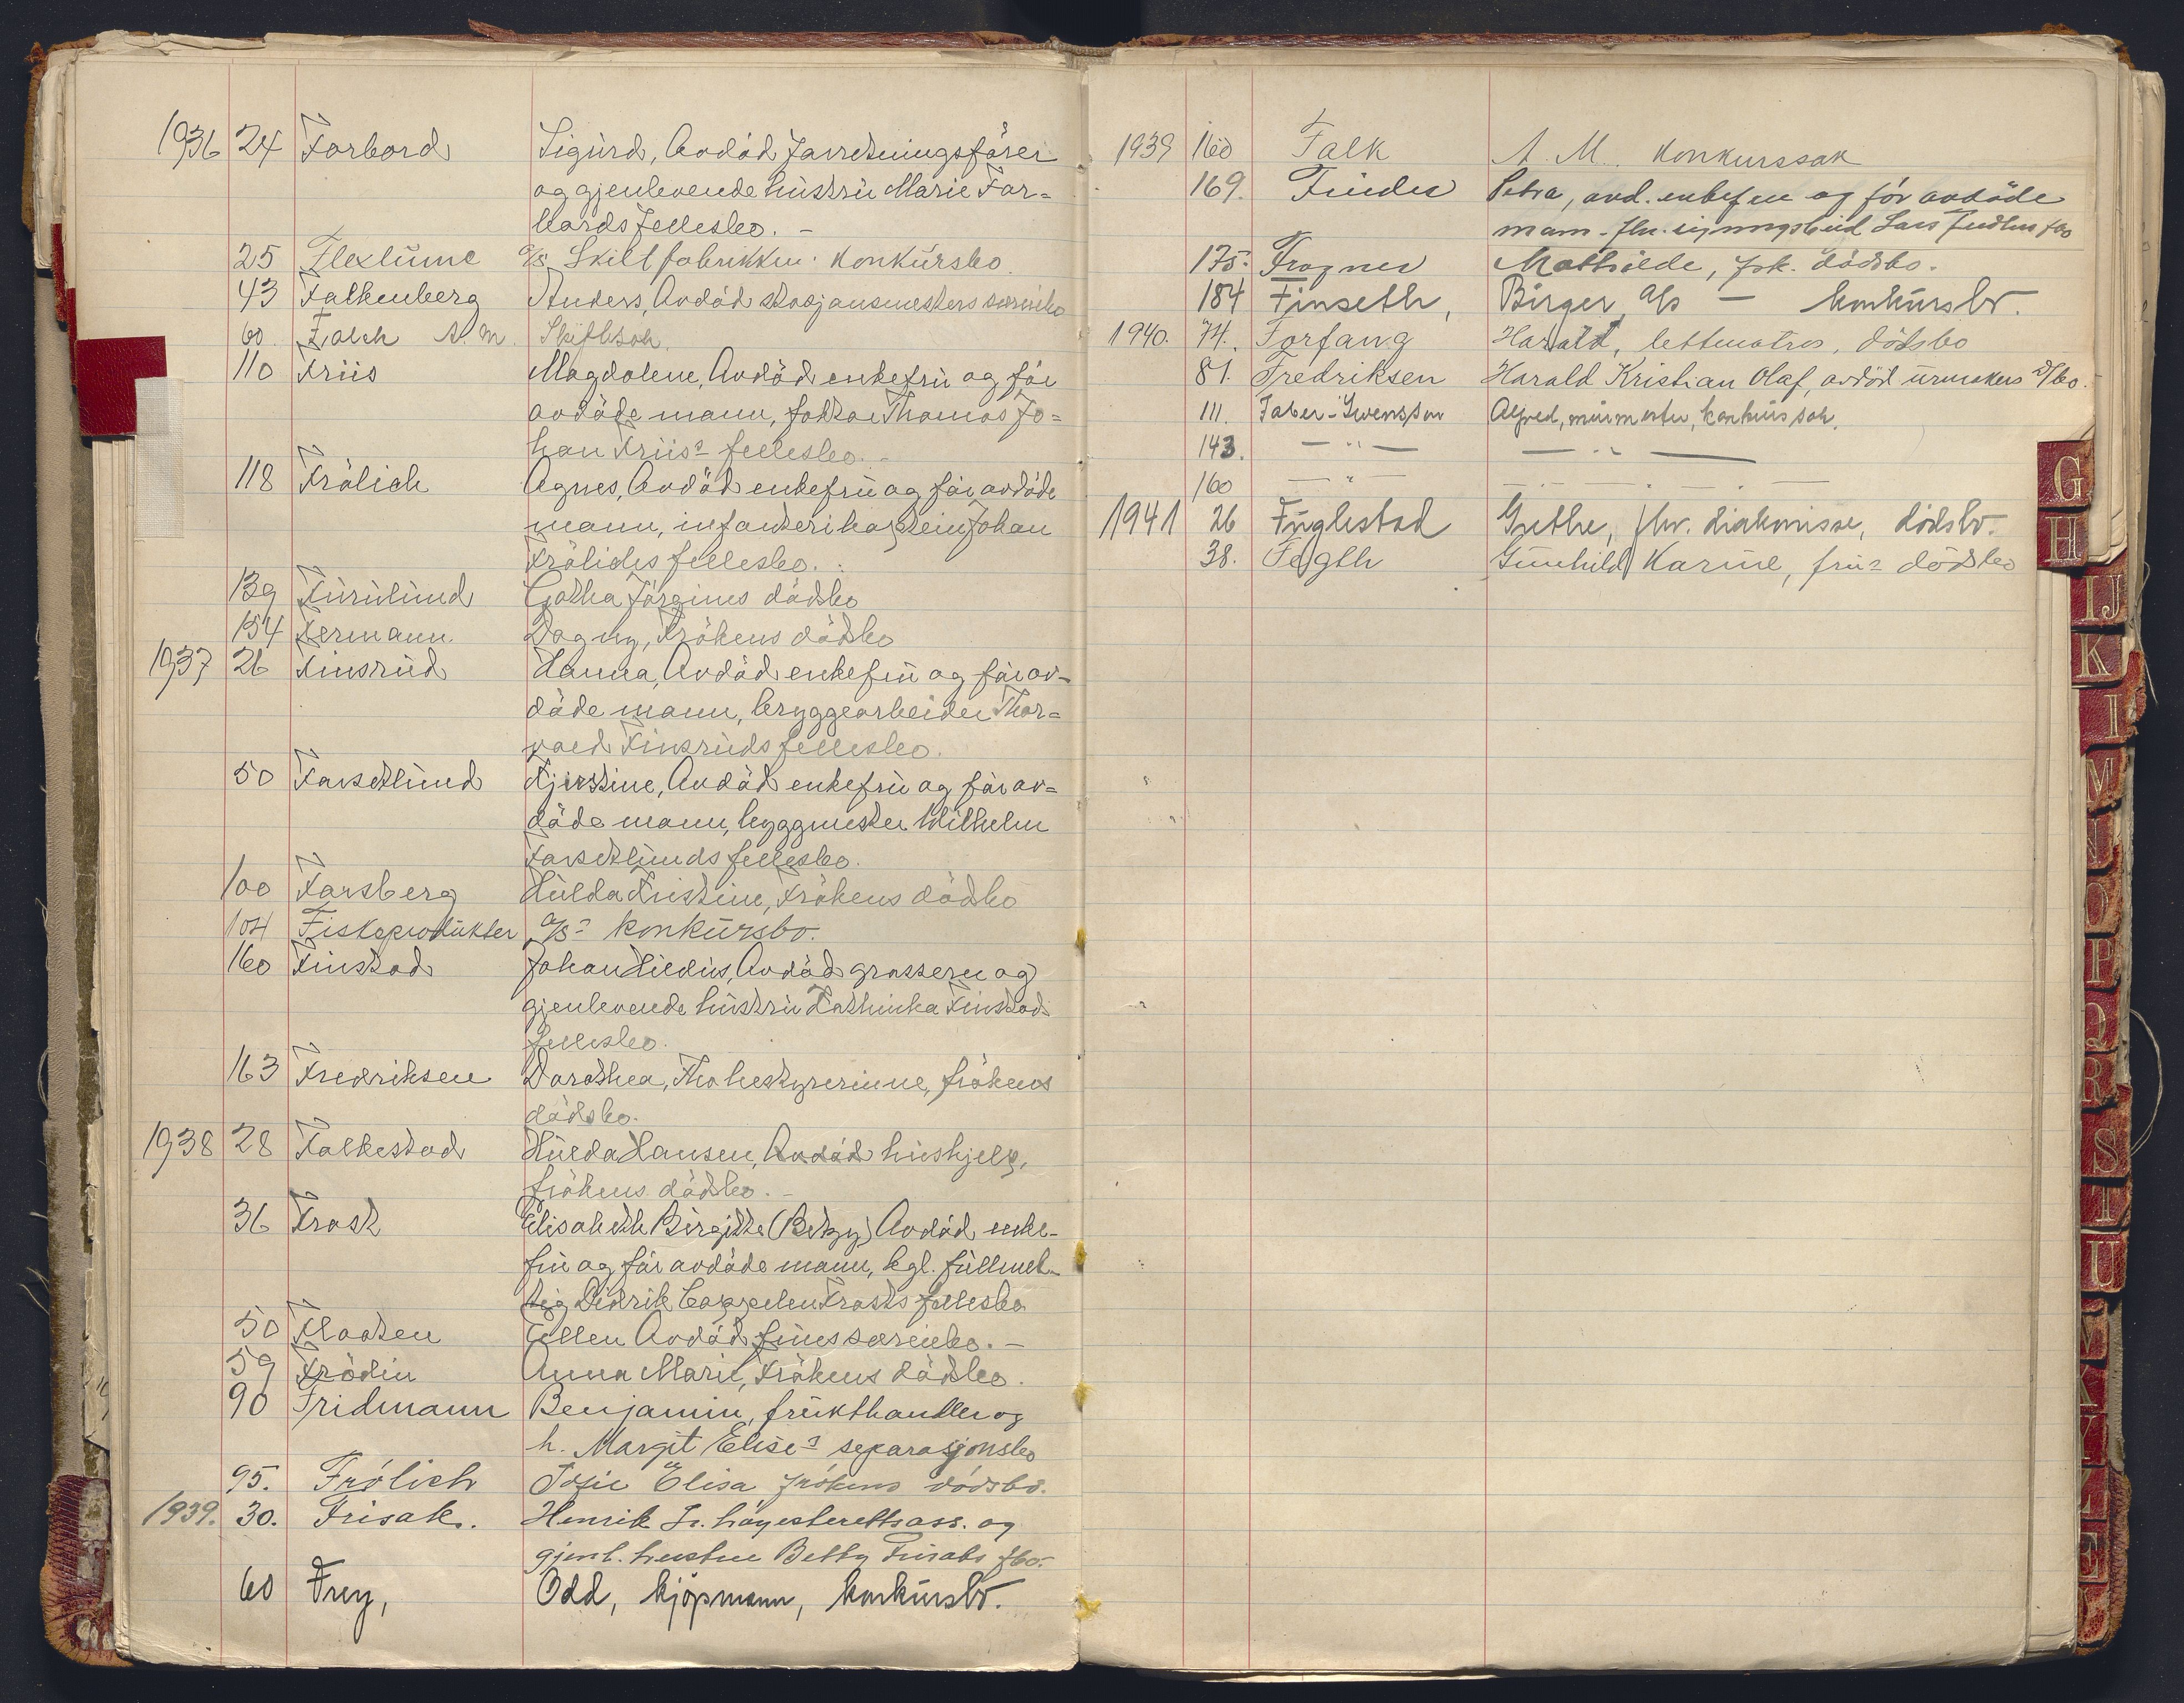 1936 24 Forbord Sigurd, Avdöd forretningsförer
og gjenlevende hustru Marie For=
bords fellesbo. -
25 Flexlume A/S Skiltfabrikken. Konkursbo.
43 Falkenberg Anders, Avdöd særeiebo
60. Falch A. M. Skiftsak.
110 Friis Magdalene, Avdöd enkefru og för
avdöde mann, Thomas Jo=
han Friis' fellesbo. -
118 Frölich Agnes, Avdöd enkefru og för avdöde
mann, infanterikaptein Johan
Frölichs fellesbo. -
139 Furulund Gotha Jörgines dödsbo
154 Fermann. Dagny, Frökens dödsbo
1937 26 Finsrud Hanna, Avdöd enkefru og för av-
döde mann, bryggearbeider Thor=
vald Finsruds fellesbo.
50 Forsetlund Kjerstine, Avdöd enkefru og för av=
döde mann, byggmester Wilhelm
Forsetlunds fellesbo.
100 Forsberg Hulda Kristine, Frökens dödsbo
104 Fiskeprodukter A/S' konkursbo.
160 Finstad Johan Avdöd grosserer og
gjenlevende hustru Kathinka Finstads
fellesbo.
163 Fredriksen Dorothea, frökens
dödsbo.
1938 28 Falkestad Hulda Hansen, Avdöd hushjelp,
frökens dödsbo. -
36 Frost Elisabeth Birgitte (Betzy) Avdöd enke-
fru og för avdöde mann, kgl. fullmek-
tig Didrik Cappelen Frosts fellesbo
50 Flooten Ellen Avdöd frues særeiebo. -
59 Frödin Anna Marie, Frökens dödsbo.
90 Fridmann Benjamin, frukthandler og
h. Margit Elise' separasjonsbo
95. Frölich Sofie Elisa frökens dödsbo.
1939. 30. Frisak. Henrik Fr. höyesterettsass. og
gjenl. hustru Betty Frisaks fbo.
60 Frey, Odd, kjöpmann, konkursbo.
1939 160 Falk A. M. Konkurssak
169. Petra, avd. enkefru og för avdöde
mann - Lars fbo
175. Frogner Mathilde, frk. dödsbo.
184 Finseth, Birger A/S - konkursbo.
1940. 74. Forfang Harald, lettmatros, dödsbo
81. Fredriksen Harald Kristian Olaf, avdöd urmakers d/bo.
111. Faber-Swensson Alfred, murmester, konkurssak.
143. — " — — " —
160 — " — — " —
1941 26 Fuglestad Grethe, fhv. diakonisse, dödsbo.
38. Fegth Gunhild Karine, frus dödsbo
G
H
IJ
K
M
N
O
P
R
S
T
U